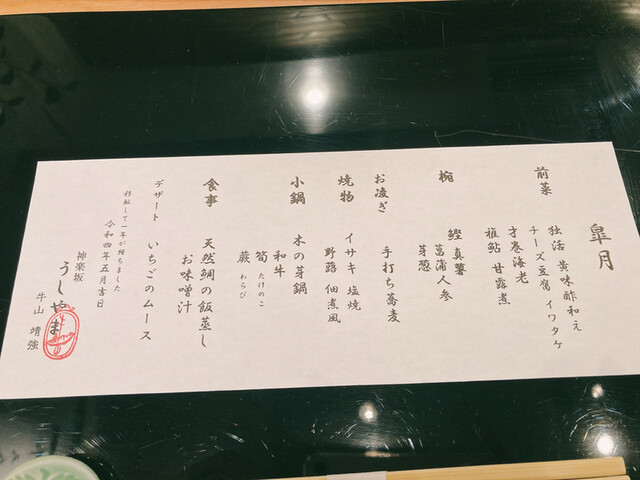 皐月
前菜
独活 黄味酢和え
チーズ豆腐 イワタケ
才巻海老
稚鮎 甘露煮
椀
鱧 真薯
菖蒲人参
芽葱
お凌ぎ
手打ち蕎麦
焼物
イサキ 塩焼
野蕗 佃煮風
小鍋
木の芽鍋
和牛
筍 たけのこ
蕨 わらび
食事
天然鯛の飯蒸し
お味噌汁
デザート いちごのムース
移転して一年が経ちました
令和四年五月吉日
神楽坂
うしやま
牛山 靖強